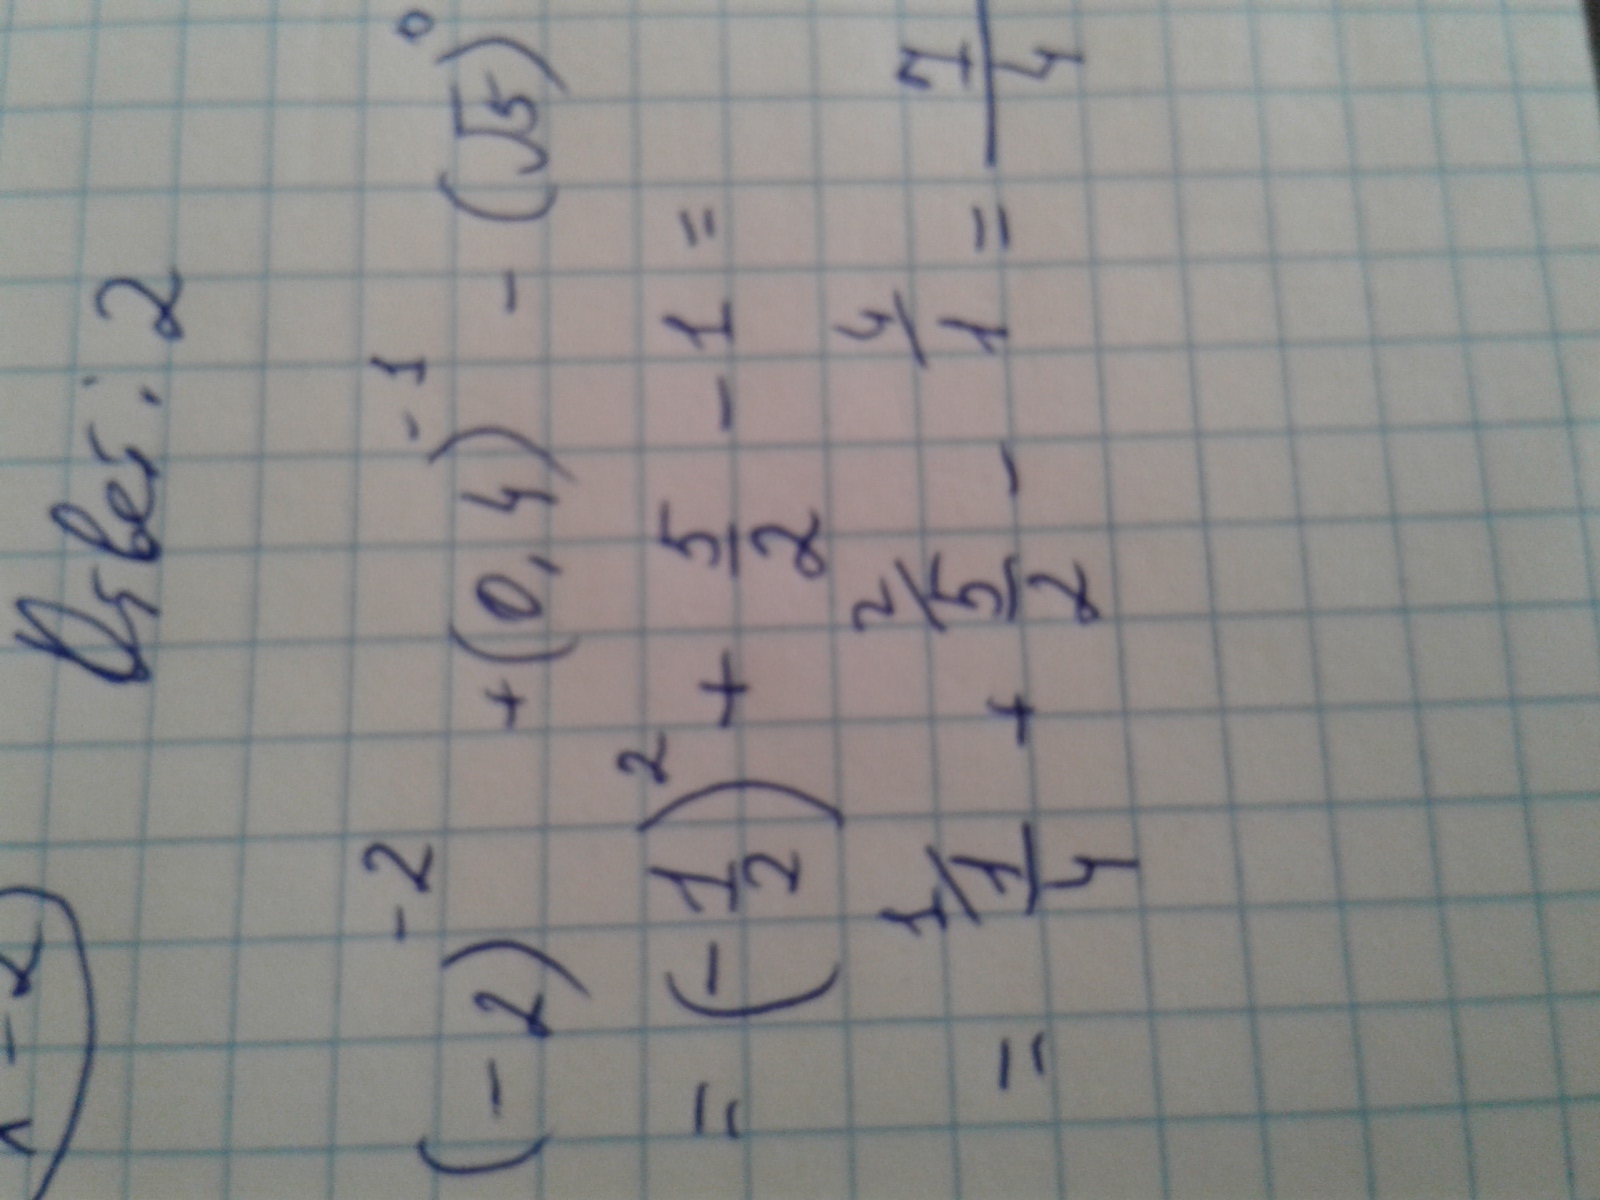 Ответ: 2
(-2)^-2 + (0,4)^-1 - (√5)^0
= (-1/2)^2 + 5/2 - 1 =
= 1/4 ^1/ + 5/2 ^2/ - 1 ^4/ = 7/4